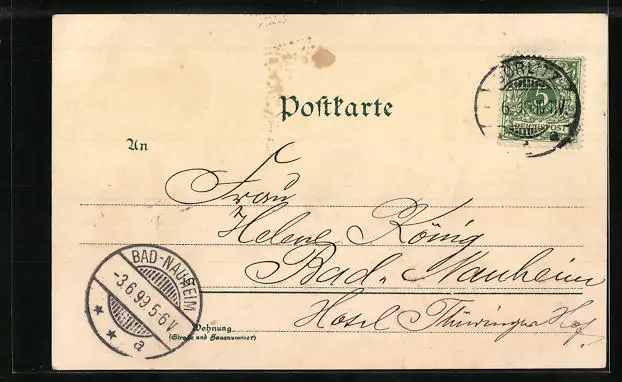 Postkarte
GÖRLITZ
5
REICHSPOST
a
An
Frau
Helene König
Bad-Nauheim
Hotel Thüringer Hof
BAD-NAUHEIM
-3.6.99.5-6V
a
Wohnung
(Straße und Hausnummer)